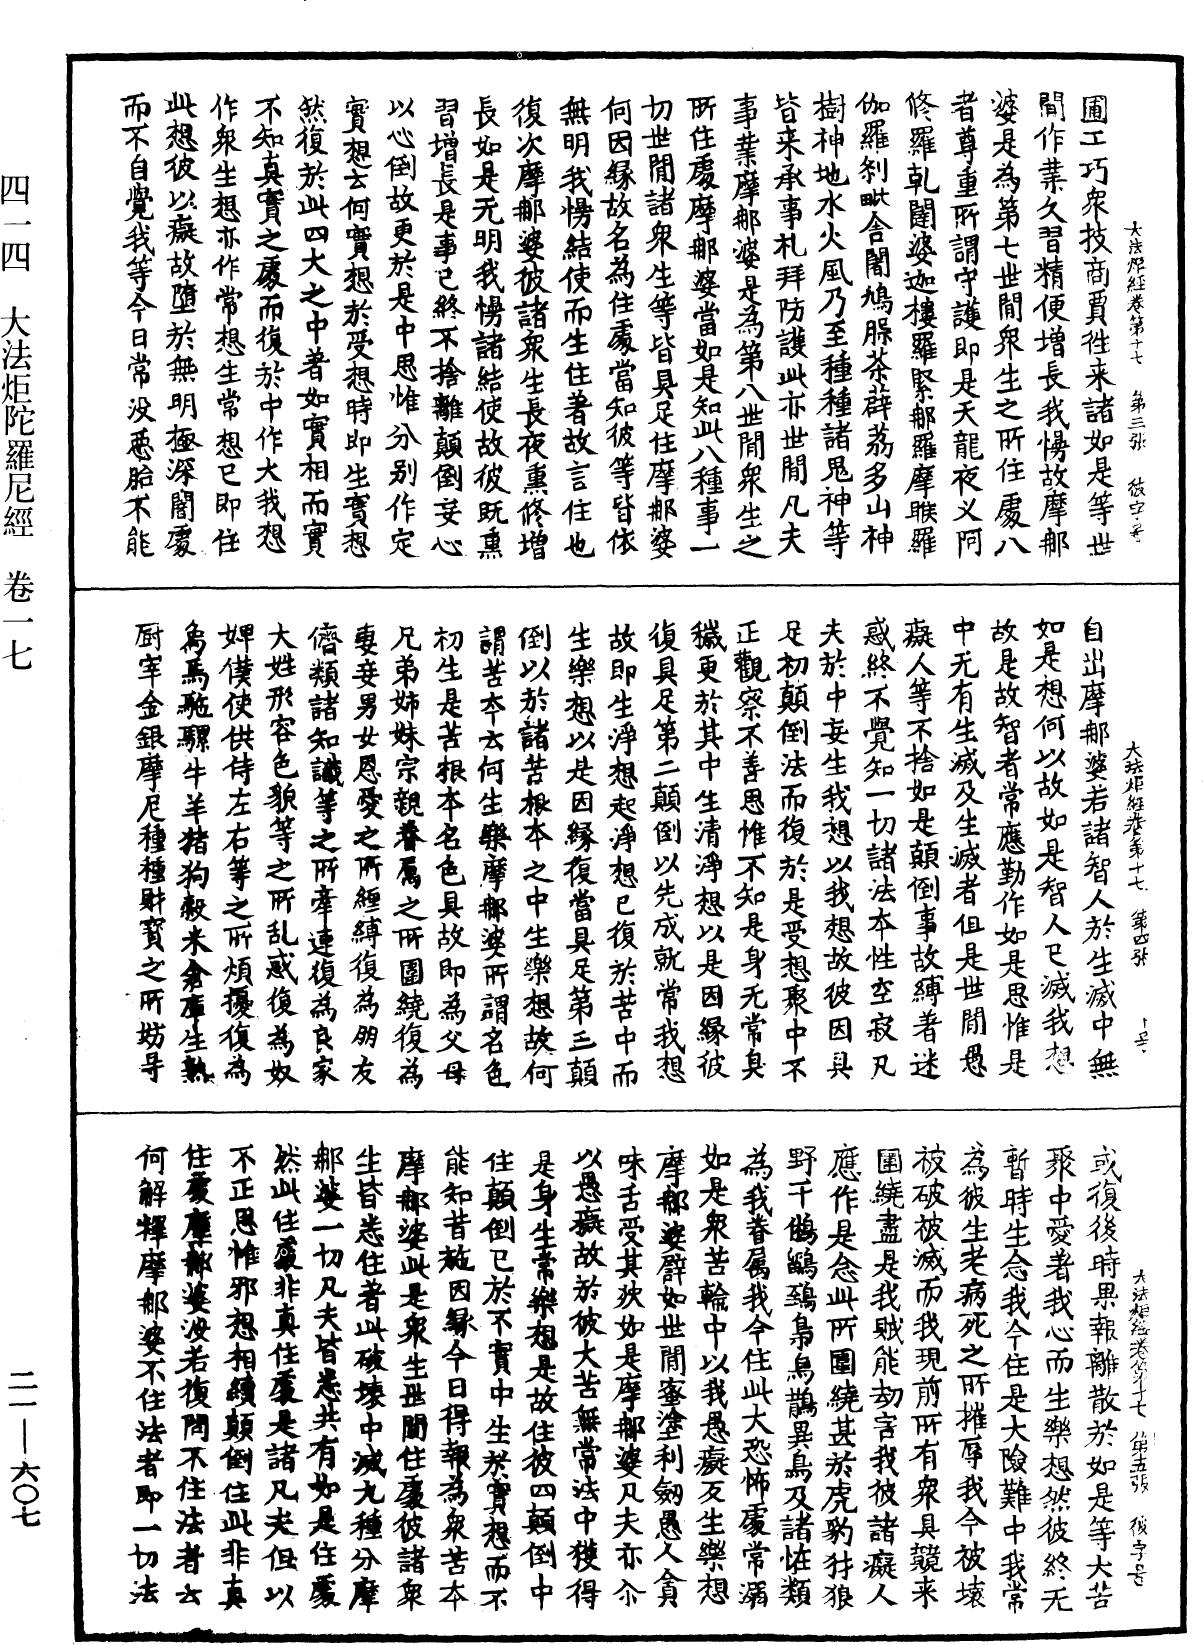 大法炬經卷第十七　第三张　彼字号
圃工巧衆技商賈徃来諸如是等世
間作業久習精便增長我愓故摩那
婆是為第七世間衆生之所住處八
者尊重所謂守護即是天龍夜义阿
修羅乹闥婆迦樓羅緊那羅摩睺羅
伽羅刹毗舍闍鳩脲茶薜荔多山神
樹神地水火風乃至種種諸鬼神等
皆来承事札拜防護此亦世間凡夫
事業摩那婆是為第八世間衆生之
所住處摩那婆當如是知此八種事一
切世間諸衆生等皆具足住摩那婆
何因緣故名為住處當知彼等皆依
無明我愓結使而生住著故言住也
復次摩那婆彼諸衆生長夜熏修增
長如是无明我愓諸結使故彼既熏
習增長是事已終不捨離顛倒妄心
以心倒故更於是中思惟分别作定
實想云何實想於受想時即生實想
然復於此四大之中著如實相而實
不知真實之處而復於中作大我想
作衆生想亦作常想生常想已即住
此想彼以癡故墮於無明極深闇處
而不自覺我等今日常没惡胎不能
大法炬經卷第十七　第四张
自出摩那婆若諸智人於生滅中無
如是想何以故如是智人已滅我想
故是故智者常應勤作如是思惟是
中无有生滅及生滅者但是世間愚
癡人等不捨如是顛倒事故縛著迷
惑終不覺知一切諸法本性空寂凡
夫於中妄生我想以我想故彼因具
足初顛倒法而復於是受想聚中不
正觀察不善思惟不知是身无常臭
穢更於其中生清淨想以是因緣彼
復具足第二顛倒以先成就常我想
故即生淨想起淨想已復於苦中而
生樂想以是因緣復當具足第三顛
倒以於諸苦根本之中生樂想故何
謂苦本云何生樂摩那婆所謂名色
初生是苦根本名色具故即為父母
兄弟姉妹宗親眷属之所圍繞復為
妻妾男女恩愛之所纏縛復為朋友
儕類諸知識等之所牽連復為良家
大姓形容色貌等之所乱惑復為奴
婢僕使供侍左右等之所煩擾復為
象馬駞騾牛羊猪狗穀米倉庫生熟
厨宰金銀摩尼種種財寳之所妨㝵
大法炬經卷第十七　第五張　彼字号
或復後時果報離散於如是等大苦
聚中愛著我心而生樂想然彼終无
暫時生念我今住是大險難中我常
為彼生老病死之所摧辱我今被壞
被破被滅而我現前所有衆具競来
圍繞盡是我賊能劫害我彼諸癡人
應作是念此所圍繞甚於虎豹犲狼
野干鵂鶹鵄梟烏鵲異鳥及諸恠類
為我眷属我今住此大恐怖處常溺
如是衆苦輪中以我愚癡反生樂想
摩那婆譬如世間蜜塗利劒愚人貪
味舌受其狄如是摩那婆凡夫亦尒
以愚癡故於彼大苦無常法中獲得
是身生常樂想是故住彼四顛倒中
住顛倒已於不實中生於實想而不
能知昔施因緣今日得報為衆苦本
摩那婆此是衆生世間住處彼諸衆
生皆悉住者此破壞中滅九種分摩
那婆一切凡夫皆悉共有如是住處
然此住處非真住處是諸凡夫但以
不正思惟邪想相續顛倒住此非真
住處摩那婆汝若復問不住法者云
何解釋摩那婆不住法者即一切法
四一四　大法炬陀羅尼經　卷一七
二一—六〇七